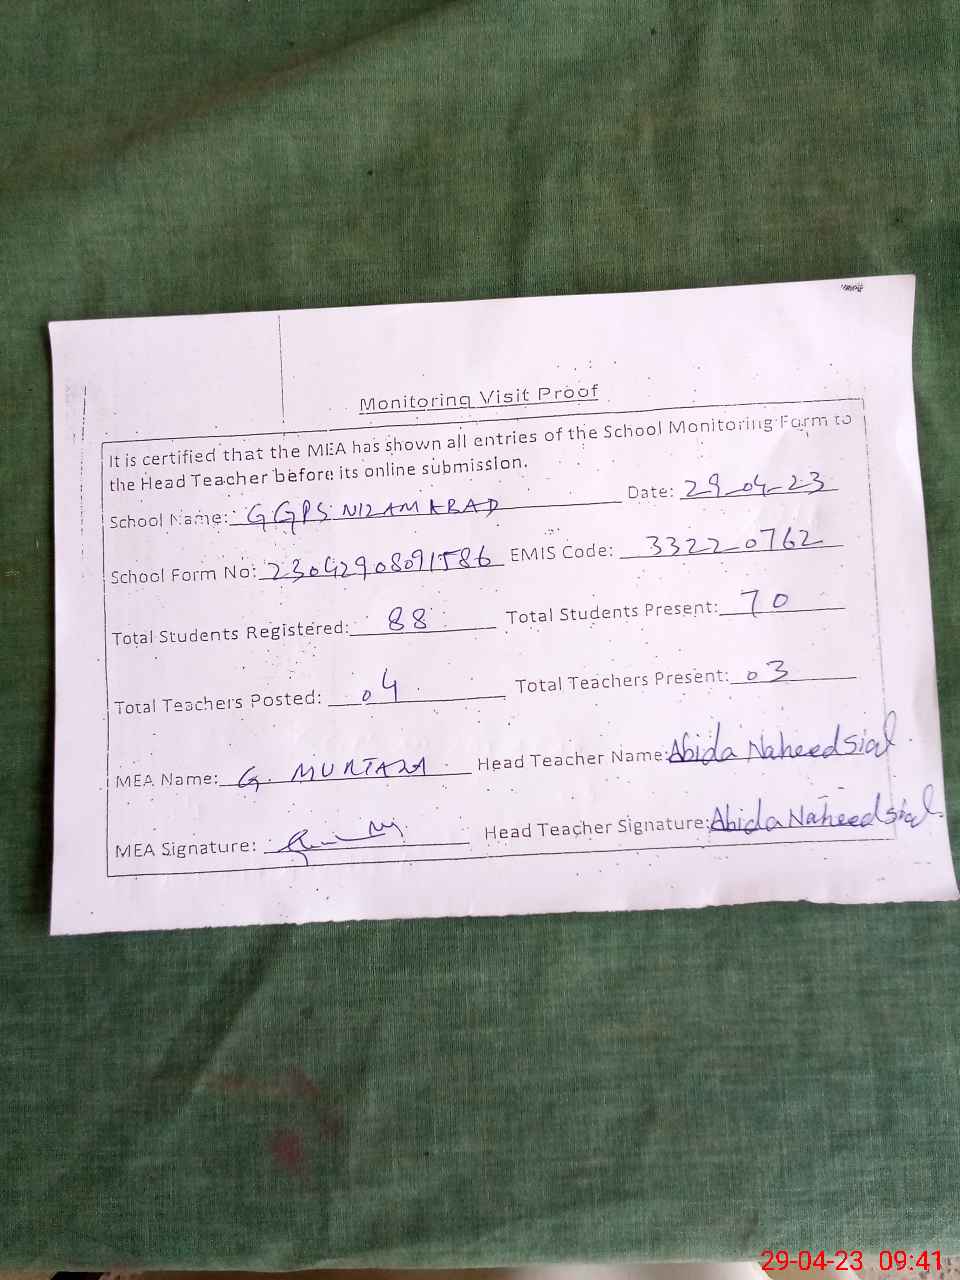 Monitoring Visit Proof
It is certified that the MEA has shown all entries of the School Monitoring Form to
the Head Teacher before its online submission.
School Name: GGPS NIZAMABAD Date: 29-04-23
School Form No: 23042908091586 EMIS Code: 33220762
Total Students Registered: 88 Total Students Present: 70
Total Teachers Posted: 04 Total Teachers Present: 03
MEA Name: G. MURTAZA Head Teacher Name: Abida Naheed Sial
MEA Signature: Head Teacher Signature: Abida Naheed Sial
29-04-23 09:41